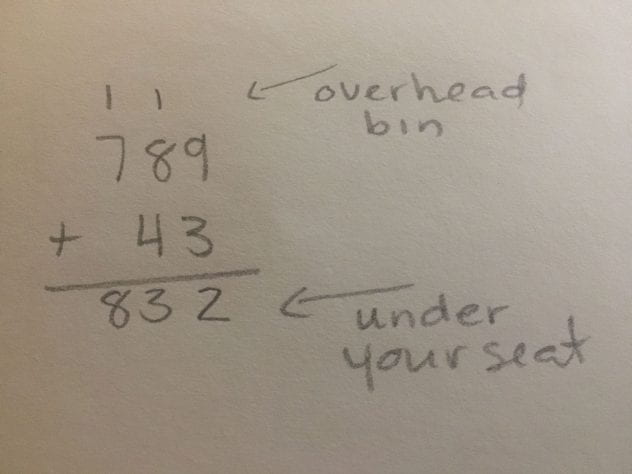 1 1 ← overhead
bin
789
+ 43
832 ← under
your seat